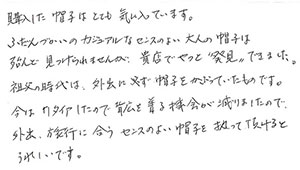 購入した帽子はとても気に入っています。
ふだんづかいのカジュアルなセンスのよい大人の帽子は
殆んど見つけられませんが、貴店でやっと“発見”できました。
祖父の時代は、外出に必ず帽子をかぶっていたものです。
今はリタイアしたので背広を着る機会が減りましたので、
外出、旅行に合うセンスのよい帽子を扱って頂けると
うれしいです。